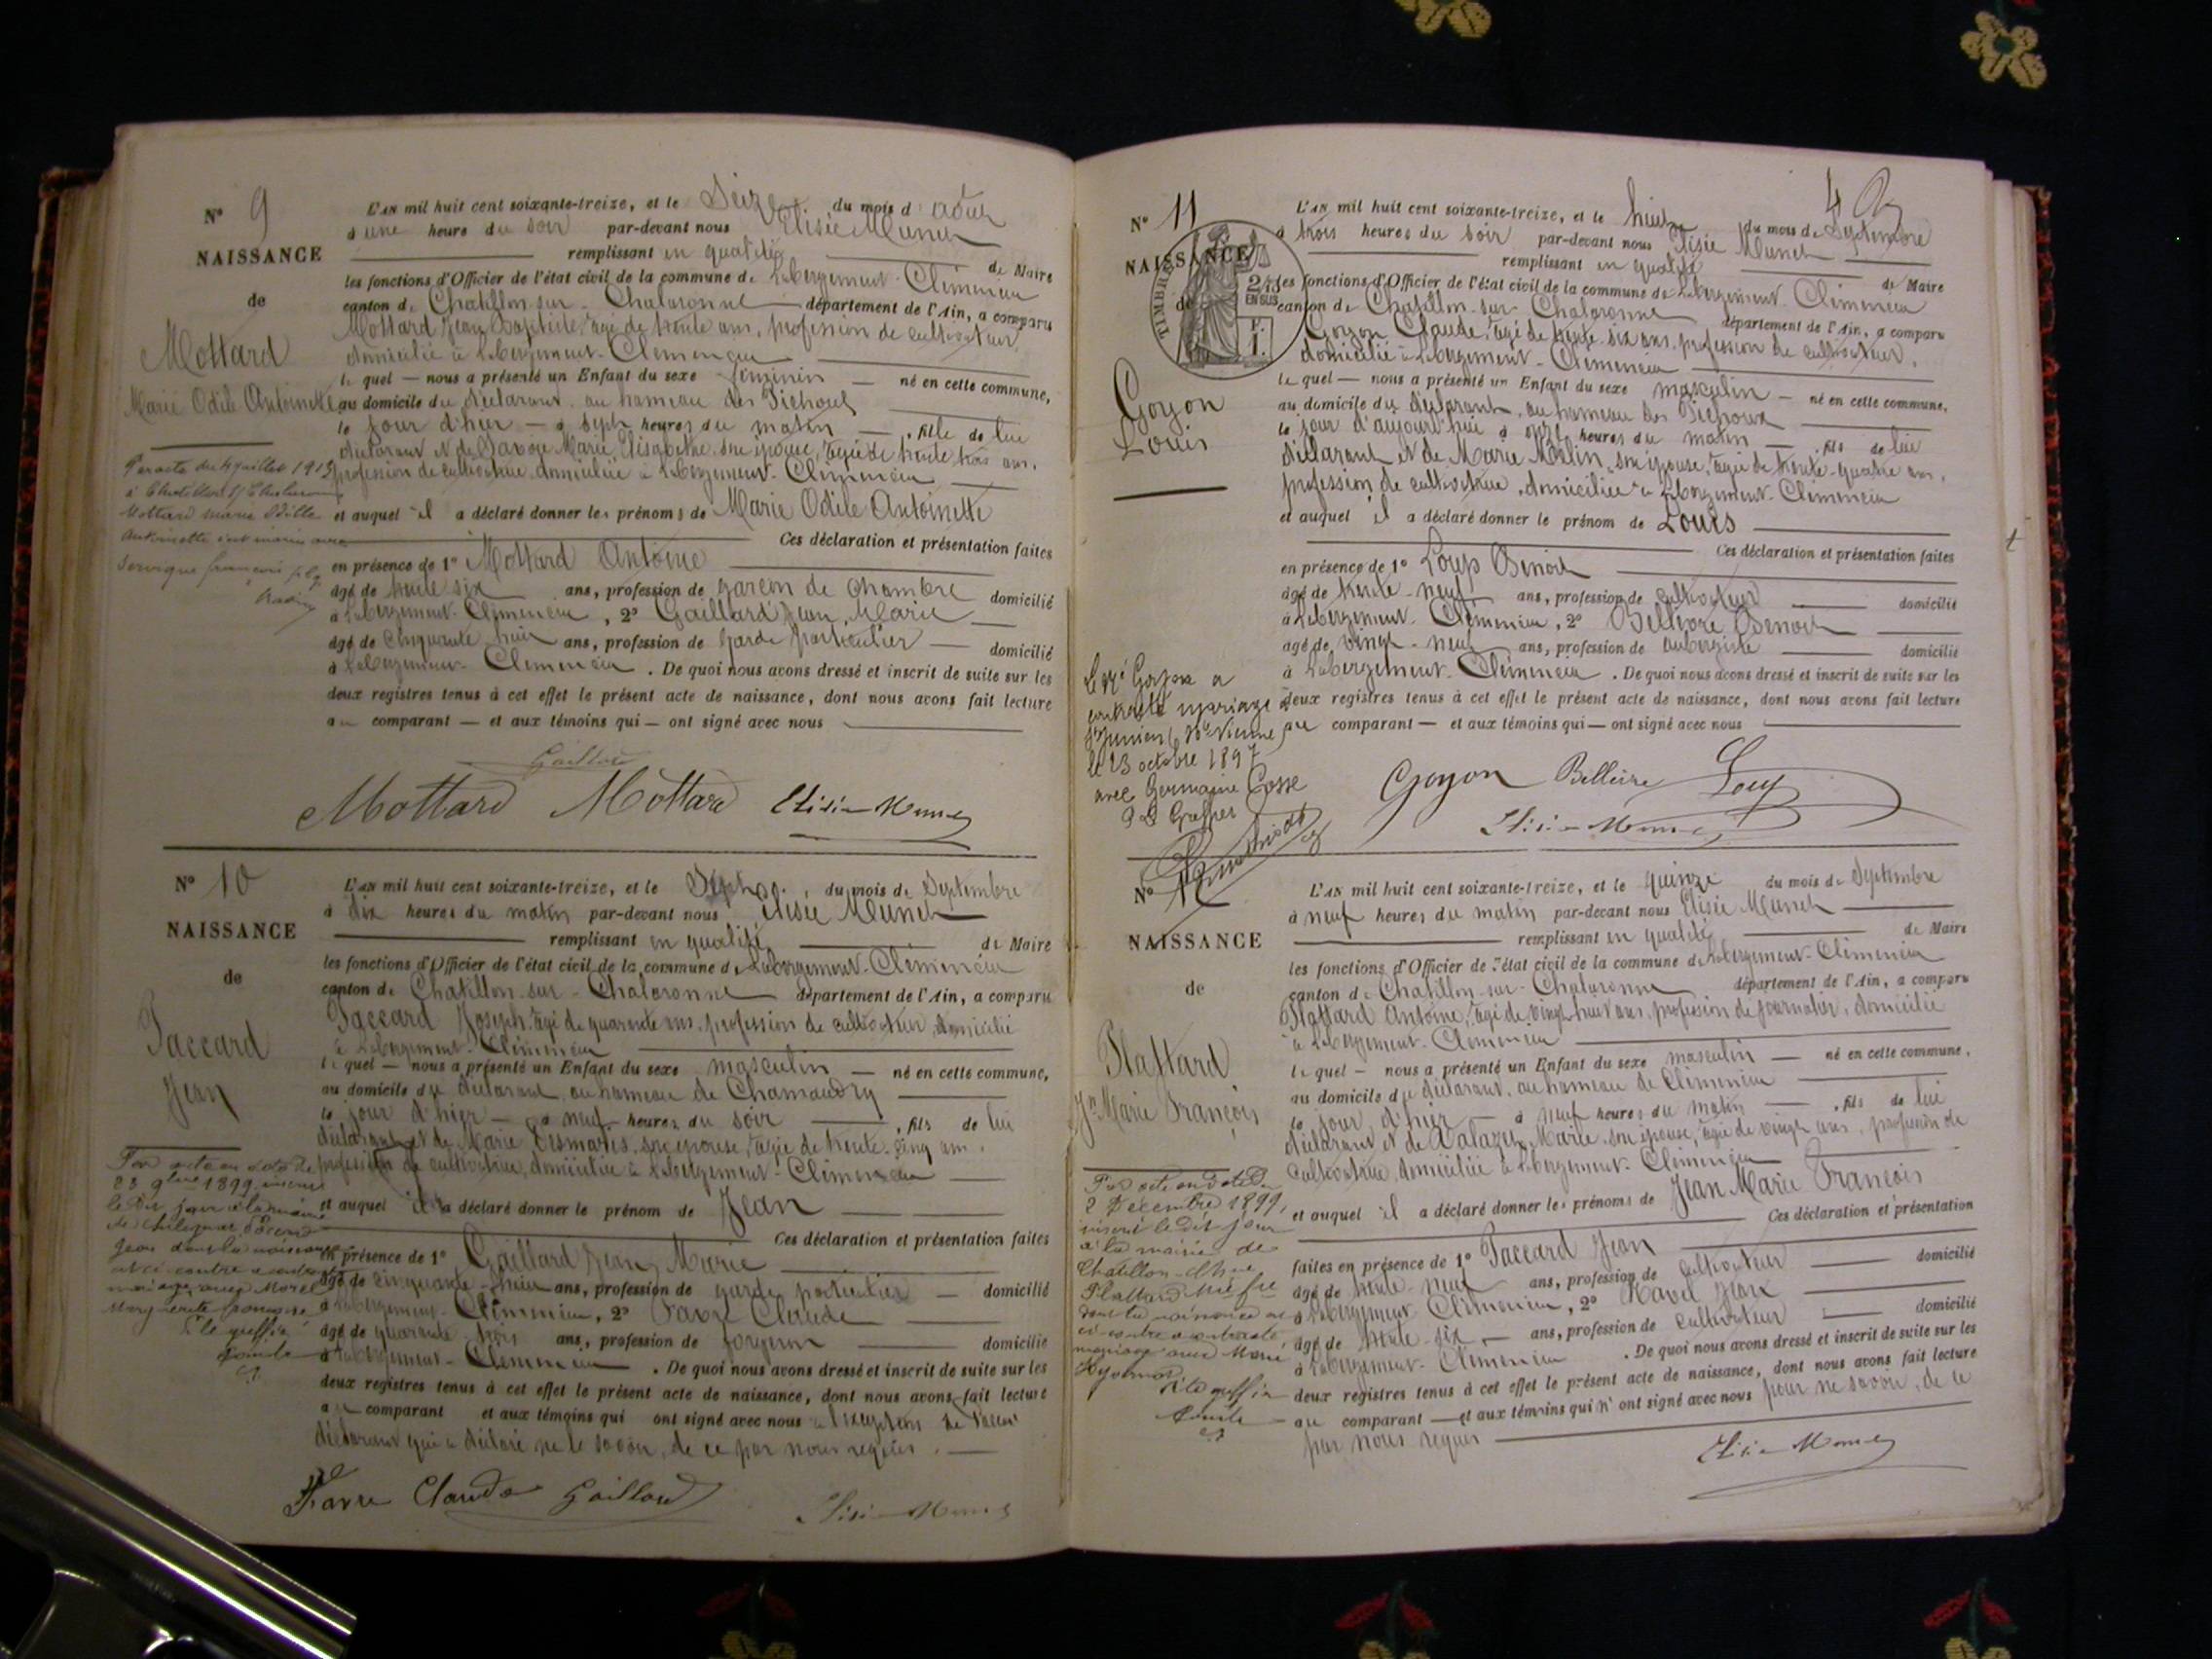 N° 9
NAISSANCE
de
Mottard
Marie Odile Antoinette
Par acte du 4 juillet 1913
à Chatillon s/ Chalaronne
Mottard Marie Odille
Antoinette
L'AN mil huit cent soixante-treize, et le Seize du mois d'août
à une heure du soir par-devant nous Elisée Munch
remplissant en qualité de Maire
les fonctions d'Officier de l'état civil de la commune de L'abergement-Clémencia
canton de Chatillon-sur-Chalaronne département de l'Ain, a comparu
Mottard Jean Baptiste, âgé de trente ans, profession de cultivateur
domicilié à L'abergement-Clémencia
lequel — nous a présenté un Enfant du sexe féminin — né en cette commune,
au domicile du déclarant, au hameau des Pichoux
le jour d'hier — à sept heures du matin — , fille de lui
déclarant et de Savoie Marie Elisabethe son épouse, âgée de trente trois ans,
profession de cultivatrice, domiciliée à L'abergement-Clémencia
et auquel il a déclaré donner les prénoms de Marie Odile Antoinette
Ces déclaration et présentation faites
en présence de 1° Mottard Antoine
âgé de trente six ans, profession de garçon de chambre domicilié
à L'abergement-Clémencia, 2° Gaillard Jean Marie
âgé de cinquante huit ans, profession de garde particulier — domicilié
à L'abergement-Clémencia. De quoi nous avons dressé et inscrit de suite sur les
deux registres tenus à cet effet le présent acte de naissance, dont nous avons fait lecture
au comparant — et aux témoins qui — ont signé avec nous
Gaillard
Mottard Mottard Elisée Munch
N° 10
NAISSANCE
de
Paccard
Jean
Par acte en date du
23 9bre 1899 inscrit
le dit jour à la mairie
Paccard
Jean dont la naissance
est ci-contre a contracté
mariage avec Morel
Marguerite Françoise
P. le greffier
L'AN mil huit cent soixante-treize, et le Sept du mois de Septembre
à dix heures du matin par-devant nous Elisée Munch
remplissant en qualité de Maire
les fonctions d'Officier de l'état civil de la commune de L'abergement-Clémencia
canton de Chatillon-sur-Chalaronne département de l'Ain, a comparu
Paccard Joseph, âgé de quarante ans, profession de cultivateur, domicilié
à L'abergement-Clémencia
lequel — nous a présenté un Enfant du sexe masculin — né en cette commune,
au domicile du déclarant, au hameau de Chamaudry
le jour d'hier — à neuf heures du soir , fils de lui
déclarant et de Marie Desmaris, son épouse, âgée de trente-cinq ans,
profession de cultivatrice, domiciliée à L'abergement-Clémencia
et auquel il a déclaré donner le prénom de Jean
Ces déclaration et présentation faites
en présence de 1° Gaillard Jean Marie
âgé de cinquante-huit ans, profession de garde particulier — domicilié
à L'abergement-Clémencia, 2° Favre Claude
âgé de quarante trois ans, profession de forgeron domicilié
à L'abergement-Clémencia. De quoi nous avons dressé et inscrit de suite sur les
deux registres tenus à cet effet le présent acte de naissance, dont nous avons fait lecture
au comparant et aux témoins qui ont signé avec nous à l'exception de Paccard
déclarant qui a déclaré ne le savoir, de ce par nous requis.
Favre Claude Gaillard Elisée Munch
N° 11
NAISSANCE
de
TIMBRE
2/10 EN SUS
Goyon
Louis
contracté mariage à
St Junien (Hte Vienne)
le 23 octobre 1897
avec Germaine Cosse
L'AN mil huit cent soixante-treize, et le huit du mois de Septembre
à trois heures du soir par-devant nous Elisée Munch
remplissant en qualité de Maire
les fonctions d'Officier de l'état civil de la commune de L'abergement-Clémencia
canton de Chatillon-sur-Chalaronne département de l'Ain, a comparu
Goyon Claude, âgé de trente-six ans, profession de cultivateur,
domicilié à L'abergement-Clémencia
lequel — nous a présenté un Enfant du sexe masculin — né en cette commune,
au domicile du déclarant, au hameau des Pichoux
le jour d'aujourd'hui à onze heures du matin — , fils de lui
déclarant et de Marie Morlin, son épouse, âgée de trente-quatre ans,
profession de cultivatrice, domiciliée à L'abergement-Clémencia
et auquel il a déclaré donner le prénom de Louis
Ces déclaration et présentation faites
en présence de 1° Loup Benoit
âgé de trente-neuf ans, profession de cultivateur domicilié
à L'abergement-Clémencia, 2° Bellivre Benoit
âgé de vingt-neuf ans, profession de aubergiste domicilié
à L'abergement-Clémencia. De quoi nous avons dressé et inscrit de suite sur les
deux registres tenus à cet effet le présent acte de naissance, dont nous avons fait lecture
au comparant — et aux témoins qui — ont signé avec nous
Goyon Loup
Elisée Munch
N° 12
NAISSANCE
de
Plattard
Jn Marie François
Par acte en date du
2 Décembre 1899,
inscrit le dit jour
à la mairie de
Chatillon
Plattard
dont la naissance est
ci contre a contracté
mariage avec Marie
P. le greffier
L'AN mil huit cent soixante-treize, et le quinze du mois de Septembre
à neuf heures du matin par-devant nous Elisée Munch
remplissant en qualité de Maire
les fonctions d'Officier de l'état civil de la commune de L'abergement-Clémencia
canton de Chatillon-sur-Chalaronne département de l'Ain, a comparu
Plattard Antoine, âgé de vingt huit ans, profession de journalier, domicilié
à L'abergement-Clémencia
lequel — nous a présenté un Enfant du sexe masculin — né en cette commune,
au domicile du déclarant, au hameau de Clémencia
le jour d'hier — à neuf heures du matin — , fils de lui
déclarant et de Marie, son épouse, âgée de vingt ans, profession de
cultivatrice, domiciliée à L'abergement-Clémencia
et auquel il a déclaré donner les prénoms de Jean Marie François
Ces déclaration et présentation
faites en présence de 1° Paccard Jean
âgé de trente-neuf ans, profession de cultivateur domicilié
à L'abergement-Clémencia, 2° Ravel Jean
âgé de trente-six — ans, profession de cultivateur domicilié
à L'abergement-Clémencia. De quoi nous avons dressé et inscrit de suite sur les
deux registres tenus à cet effet le présent acte de naissance, dont nous avons fait lecture
au comparant — et aux témoins qui n'ont signé avec nous pour ne savoir, de ce
par nous requis
Elisée Munch